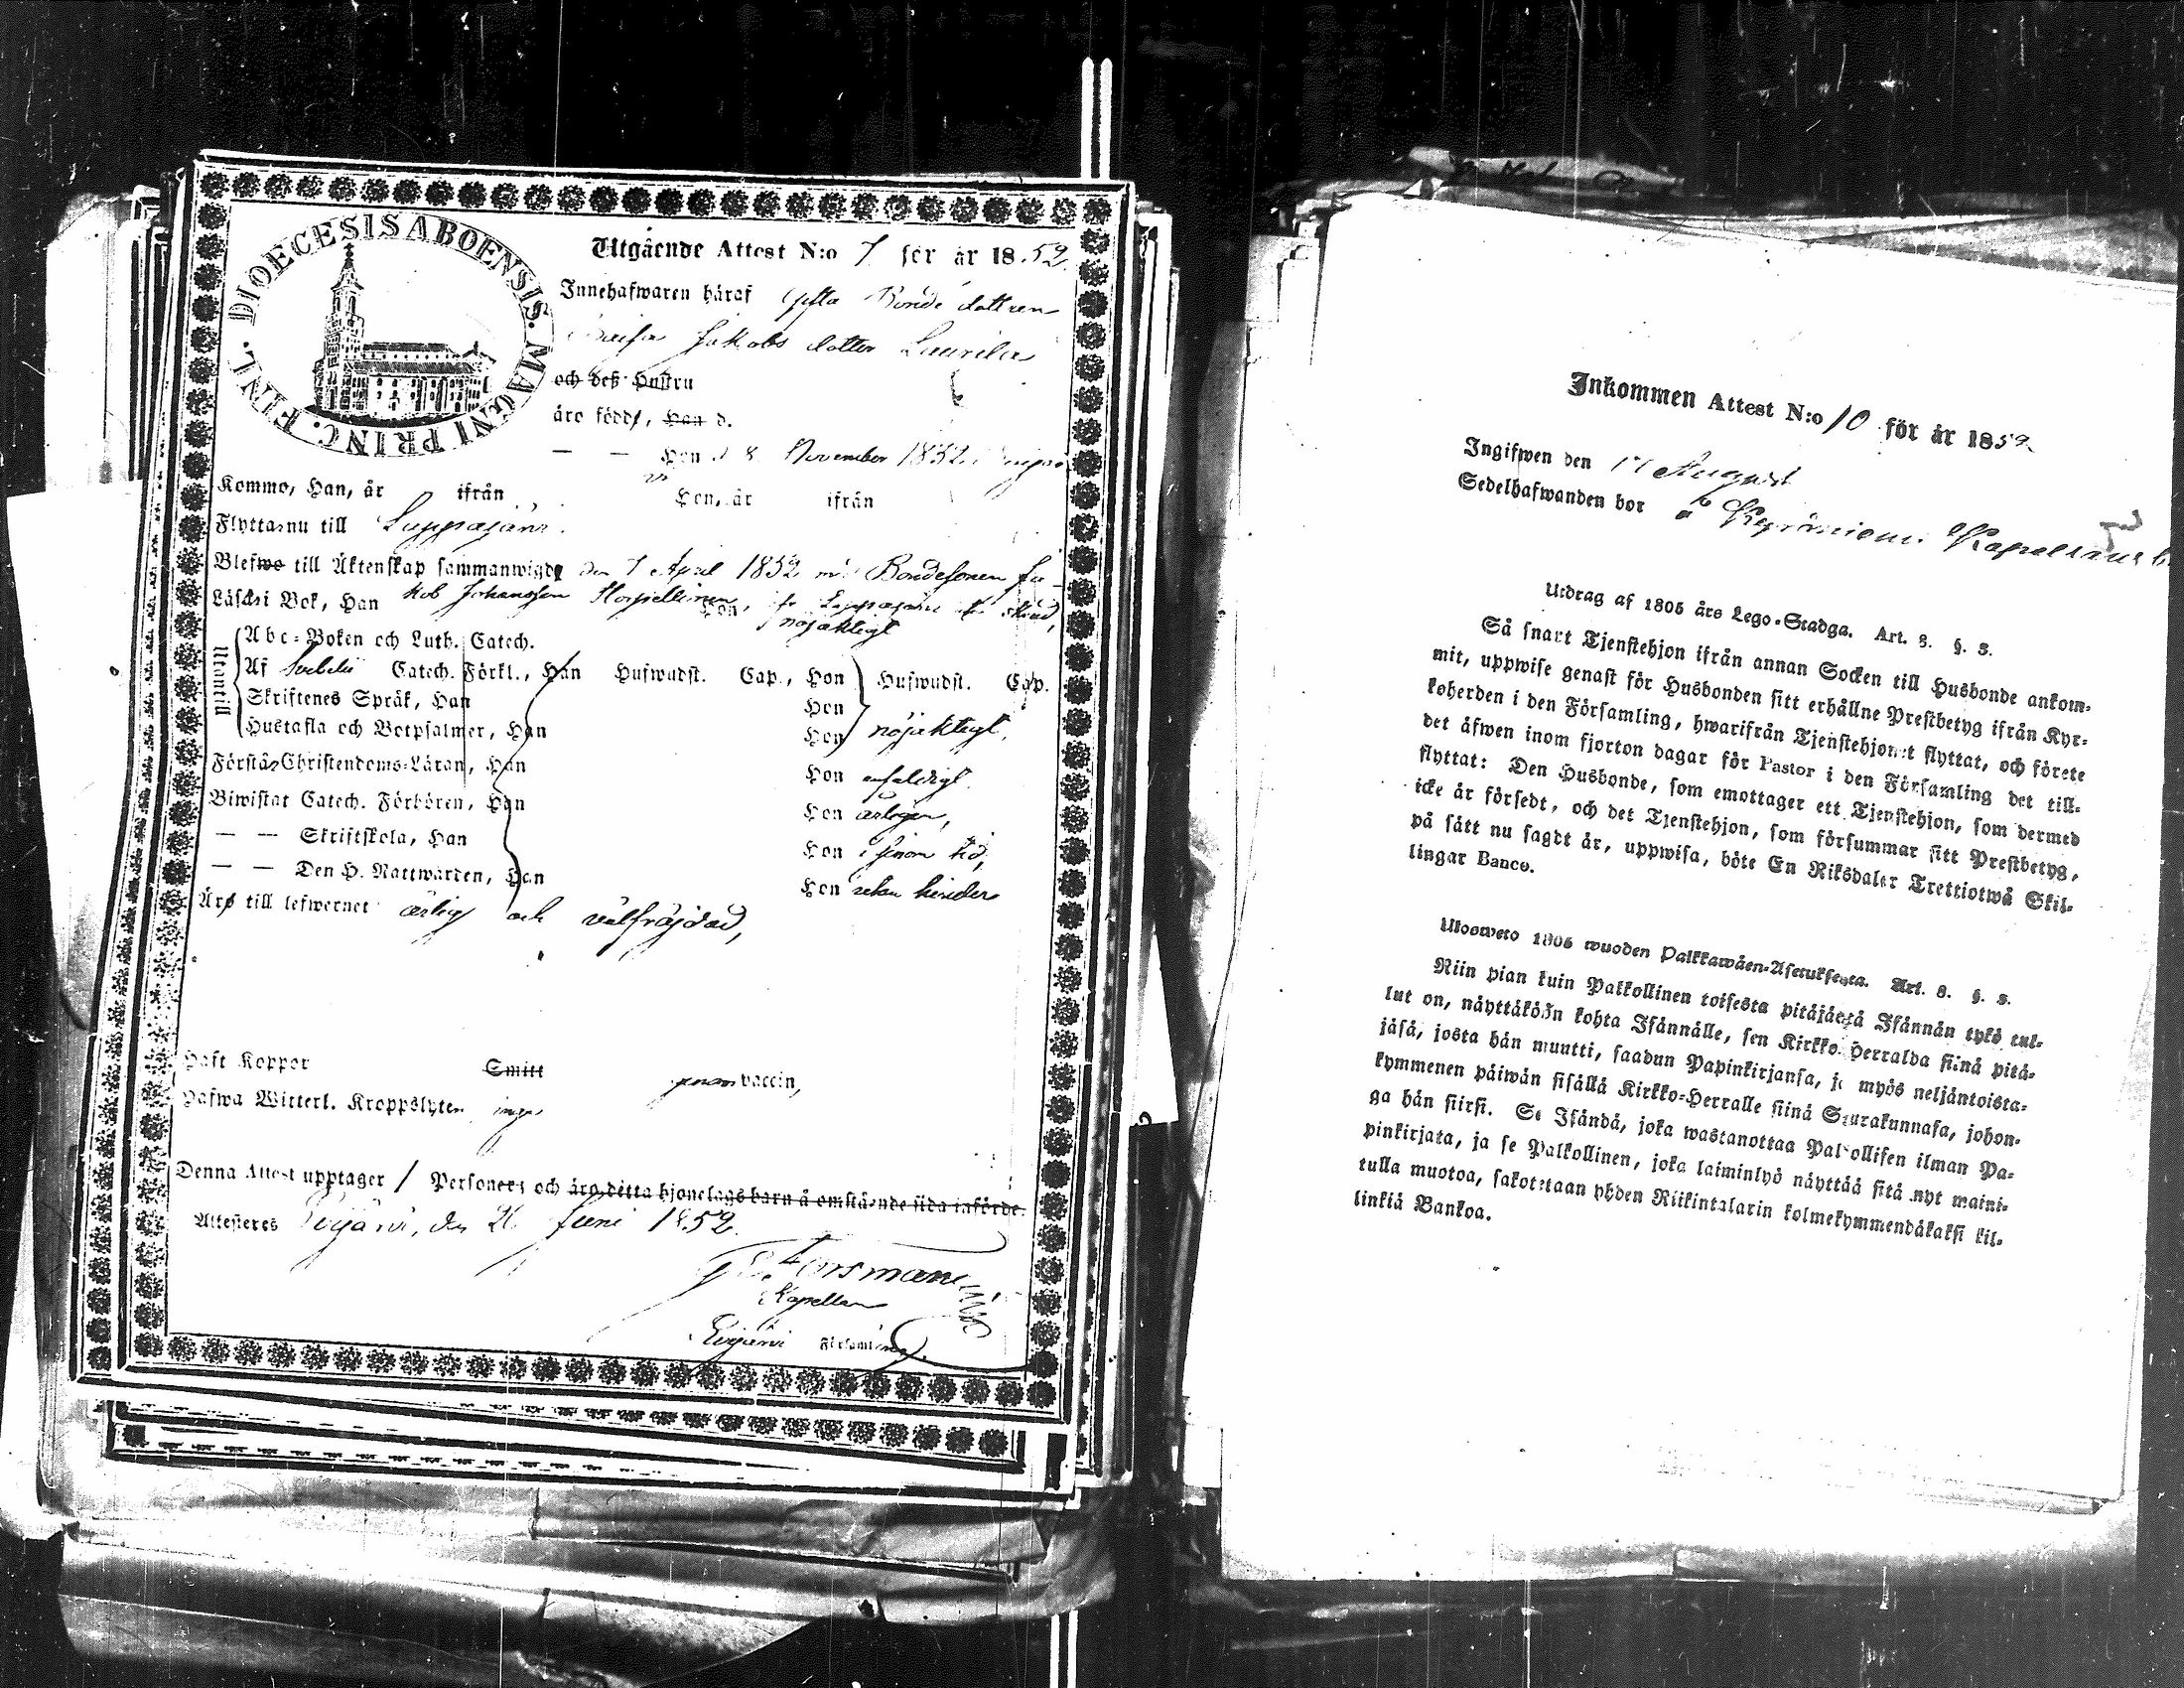 DIOECESIS ABOENSIS. MAGNI PRINC. FINL.
Utgående Attest N:o 7 för år 1852.
Innehafwaren häraf Gifta Bonde dottren
Caisa Jakobs dotter Laurila
och deß Hustru
äro födde, Han d.
— — Hon d 8 November 1832.
Komme, Han, år ifrån Hon, år ifrån
Flyttar nu till Lappajärvi.
Blefwo till Äktenskap sammanwigde den 7 April 1852 med Bondesonen Ja-
kob Johansson
Läsa i Bok, Han Hon, nöjaktligt
Utantill
Abc-Boken och Luth. Catech.
Af Svebelii Catech. Förkl., Han Hufwudst. Cap., Hon Hufwudst. Cap.
Skriftenes Språk, Han Hon
Hustafla och Botpsalmer, Han Hon nöjaktligt,
Förstå Christendoms-Läran, Han Hon enfaldigt.
Biwistat Catech. Förhören, Han Hon årligen,
— — Skriftskola, Han Hon i sinom tid,
— — Den H. Nattwarden, Han Hon utan hinder
Äro till lefwernet ärlig och välfräjdad,
Haft Koppor Smitt genom vaccin,
Hafwa Witterl. Kroppslyten inga
Denna Attest upptager 1 Personer och äro detta hjonelags barn å omstående sida införde.
Attesteras Evijärvi, den 21 Juni 1852.
Forsman
Kapellan
Evijärvi Församling.
Inkommen Attest N:o 10 för år 1852
Ingifwen den 17 August
Sedelhafwanden bor å
Utdrag af 1805 års Lego-Stadga. Art. 3. §. 3.
Så snart Tjenstehjon ifrån annan Socken till Husbonde ankom-
mit, uppwise genast för Husbonden sitt erhållne Prestbetyg ifrån Kyr-
koherden i den Församling, hwarifrån Tjenstehjonet flyttat, och förete
det äfwen inom fjorton dagar för Pastor i den Församling det till-
flyttat: Den Husbonde, som emottager ett Tjenstehjon, som dermed
icke är försedt, och det Tjenstehjon, som försummar sitt Prestbetyg,
på sätt nu sagdt är, uppwisa, böte En Riksdaler Trettiotwå Skil-
lingar Banco.
Ulosweto 1805 wuoden Palkkawäen-Asetuksesta. Art. 3. §. 3.
Niin pian kuin Palkollinen toisesta pitäjäestä Isännän tykö tul-
lut on, näyttäköön kohta Isännälle, sen Kirkko-Herralda siinä pitä-
jäsä, josta hän muutti, saadun Papinkirjansa, ja myös neljäntoista-
kymmenen päiwän sisällä Kirkko-Herralle siinä Seurakunnasa, johon-
ga hän siirsi. Se Isändä, joka wastanottaa Palkollisen ilman Pa-
pinkirjata, ja se Palkollinen, joka laiminlyö näyttää sitä nyt maini-
tulla muotoa, sakotetaan yhden Riikintalarin kolmekymmendäkaksi kil-
linkiä Bankoa.